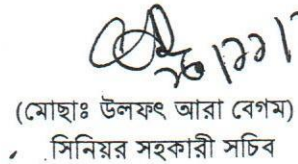 ২৬/১১/
(মোছাঃ উলফৎ আরা বেগম)
সিনিয়র সহকারী সচিব